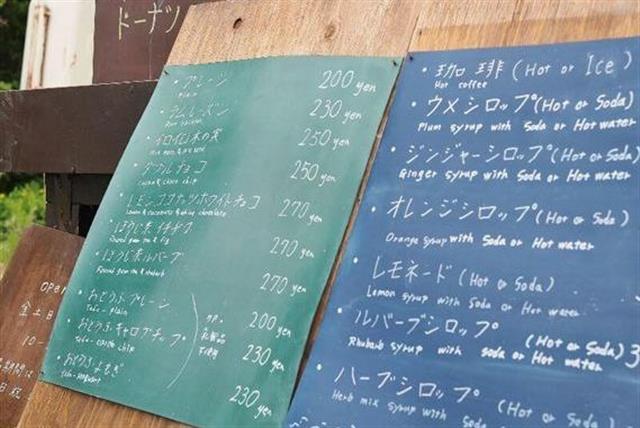 ドーナツ
・プレーン 200 yen
plain
・ラムレーズン 230 yen
Rum raisin
250 yen
・ダブルチョコ 250 yen
Cocoa & choco chip
・レモンココナッツホワイトチョコ 270 yen
Lemon & coconuts & white chocolate
・ほうじ茶イチヂク 270 yen
・ほうじ茶ルバーブ 270 yen
・おとうふプレーン 200 yen
Tofu - plain
・おとうふキャロブチップ 230 yen
Tofu - carob chip
・おとうふよもぎ 230 yen
Tofu -
・珈琲 (Hot or Ice)
Hot coffee
・ウメシロップ (Hot or Soda)
Plum syrup with Soda or Hot water
・ジンジャーシロップ (Hot or Soda)
Ginger syrup with Soda or Hot water
・オレンジシロップ (Hot or Soda)
Orange syrup with Soda or Hot water
・レモネード (Hot or Soda)
Lemon syrup with Soda or Hot water
・ルバーブシロップ (Hot or Soda) 3
Rhubarb syrup with soda or Hot water
・ハーブシロップ (Hot or Soda)
Herb mix syrup with Soda or Hot water
open
金土日
10-